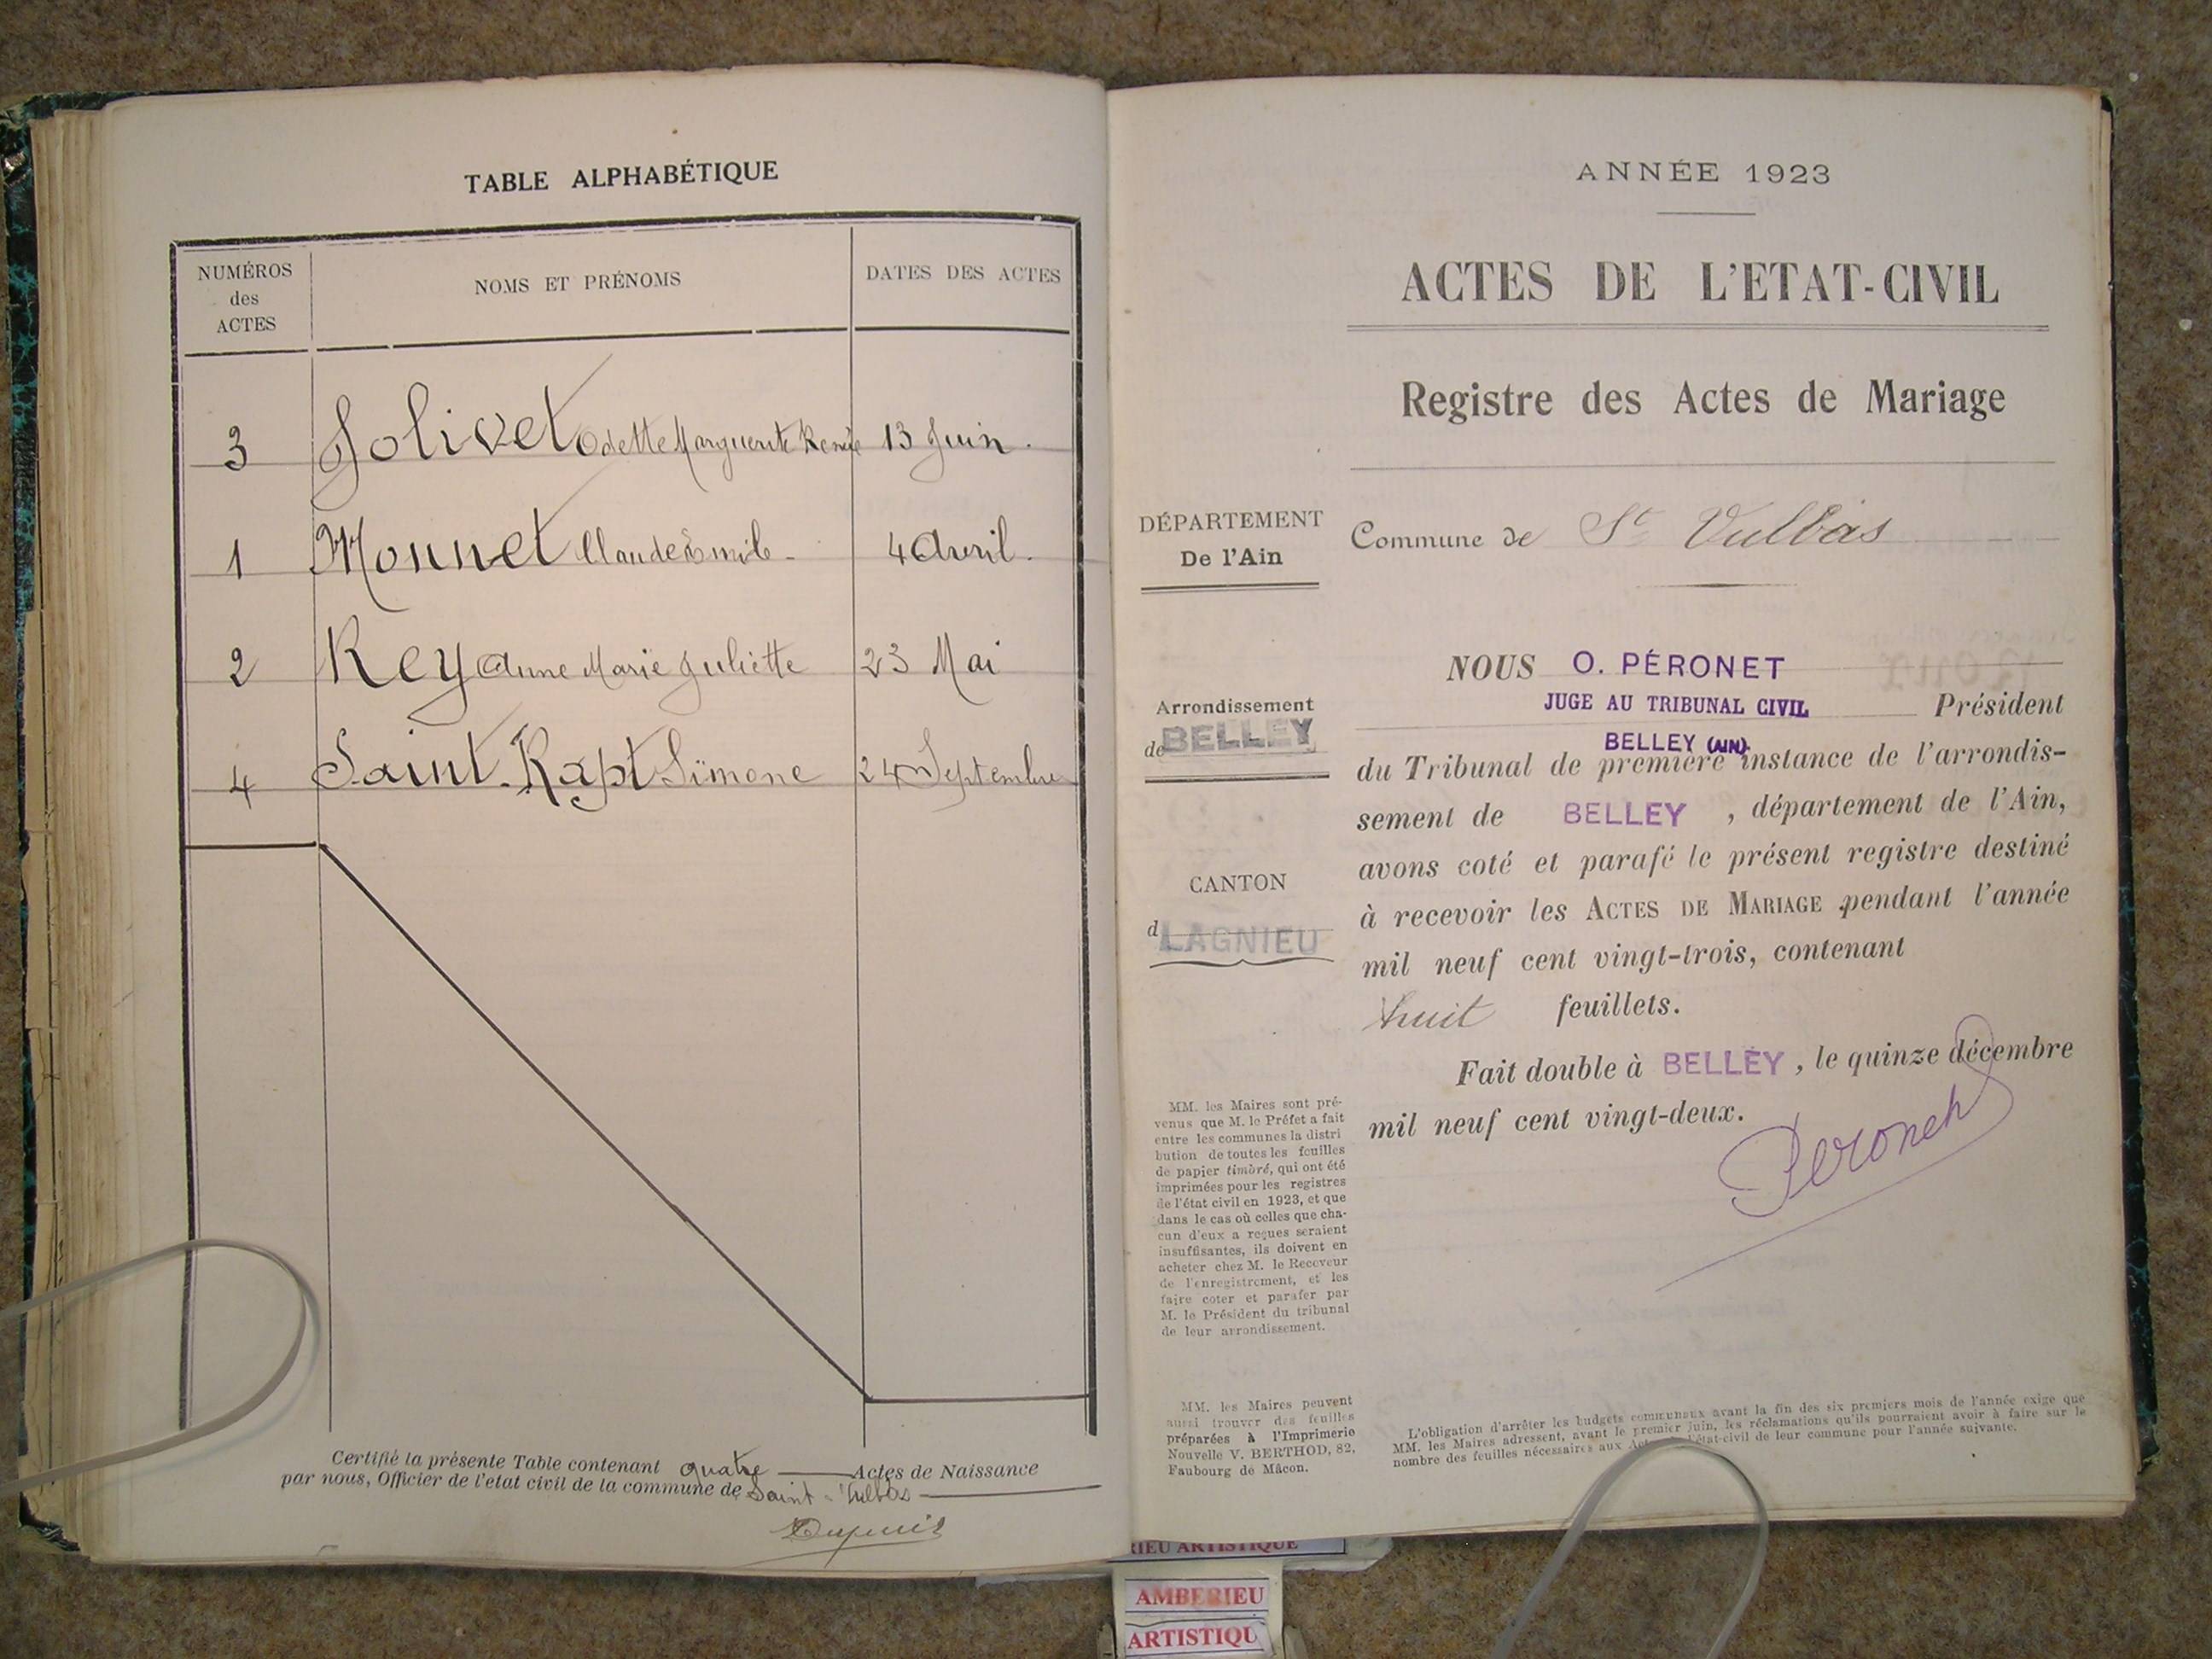 TABLE ALPHABÉTIQUE
NUMÉROS
des
ACTES
NOMS ET PRÉNOMS
DATES DES ACTES
3 Jolivet Odette Marguerite Renée 13 Juin.
1 Monnet Claude Emile - 4 Avril.
2 Rey Anne Marie Juliette 23 Mai
4 Saint-Rapt Simone 24 Septembre
Certifié la présente Table contenant quatre Actes de Naissance
par nous, Officier de l'état civil de la commune de Saint-Vulbas
Dupuis
ANNÉE 1923
ACTES DE L'ETAT-CIVIL
Registre des Actes de Mariage
DÉPARTEMENT
De l'Ain
Commune de St Vulbas
Arrondissement
de BELLEY
CANTON
d LAGNIEU
NOUS O. PÉRONET
JUGE AU TRIBUNAL CIVIL Président
BELLEY (AIN)
du Tribunal de première instance de l'arrondis-
sement de BELLEY, département de l'Ain,
avons coté et parafé le présent registre destiné
à recevoir les ACTES DE MARIAGE pendant l'année
mil neuf cent vingt-trois, contenant
huit feuillets.
Fait double à BELLEY, le quinze décembre
mil neuf cent vingt-deux.
Peronet
MM. les Maires sont pré-
venus que M. le Préfet a fait
entre les communes la distri
bution de toutes les feuilles
de papier timbré, qui ont été
imprimées pour les registres
de l'état civil en 1923, et que
dans le cas où celles que cha-
cun d'eux a reçues seraient
insuffisantes, ils doivent en
acheter chez M. le Receveur
de l'enregistrement, et les
faire coter et parafer par
M. le Président du tribunal
de leur arrondissement.
MM. les Maires peuvent
aussi trouver des feuilles
préparées à l'Imprimerie
Nouvelle V. BERTHOD, 82,
Faubourg de Mâcon.
L'obligation d'arrêter les budgets communaux avant la fin des six premiers mois de l'année exige que
MM. les Maires adressent, avant le premier juin, les réclamations qu'ils pourraient avoir à faire sur le
nombre des feuilles nécessaires aux l'état-civil de leur commune pour l'année suivante.
ARTISTIQUE
AMBERIEU
ARTISTIQU